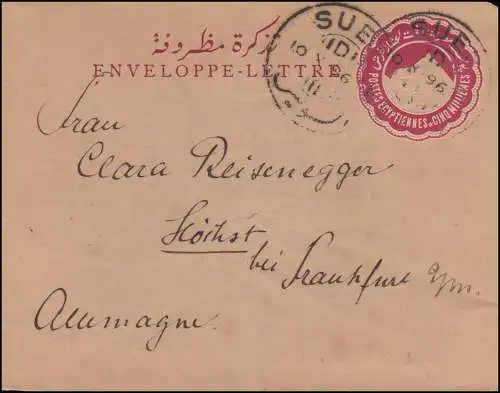 تذكرة مظروفة
ENVELOPPE-LETTRE
SUE
10 X 96
SUE
X 96
POSTES EGYPTIENNES CINQ MILLIEMES
Frau
Clara Reisenegger
Höchst
bei Frankfurt a/m.
Allemagne.